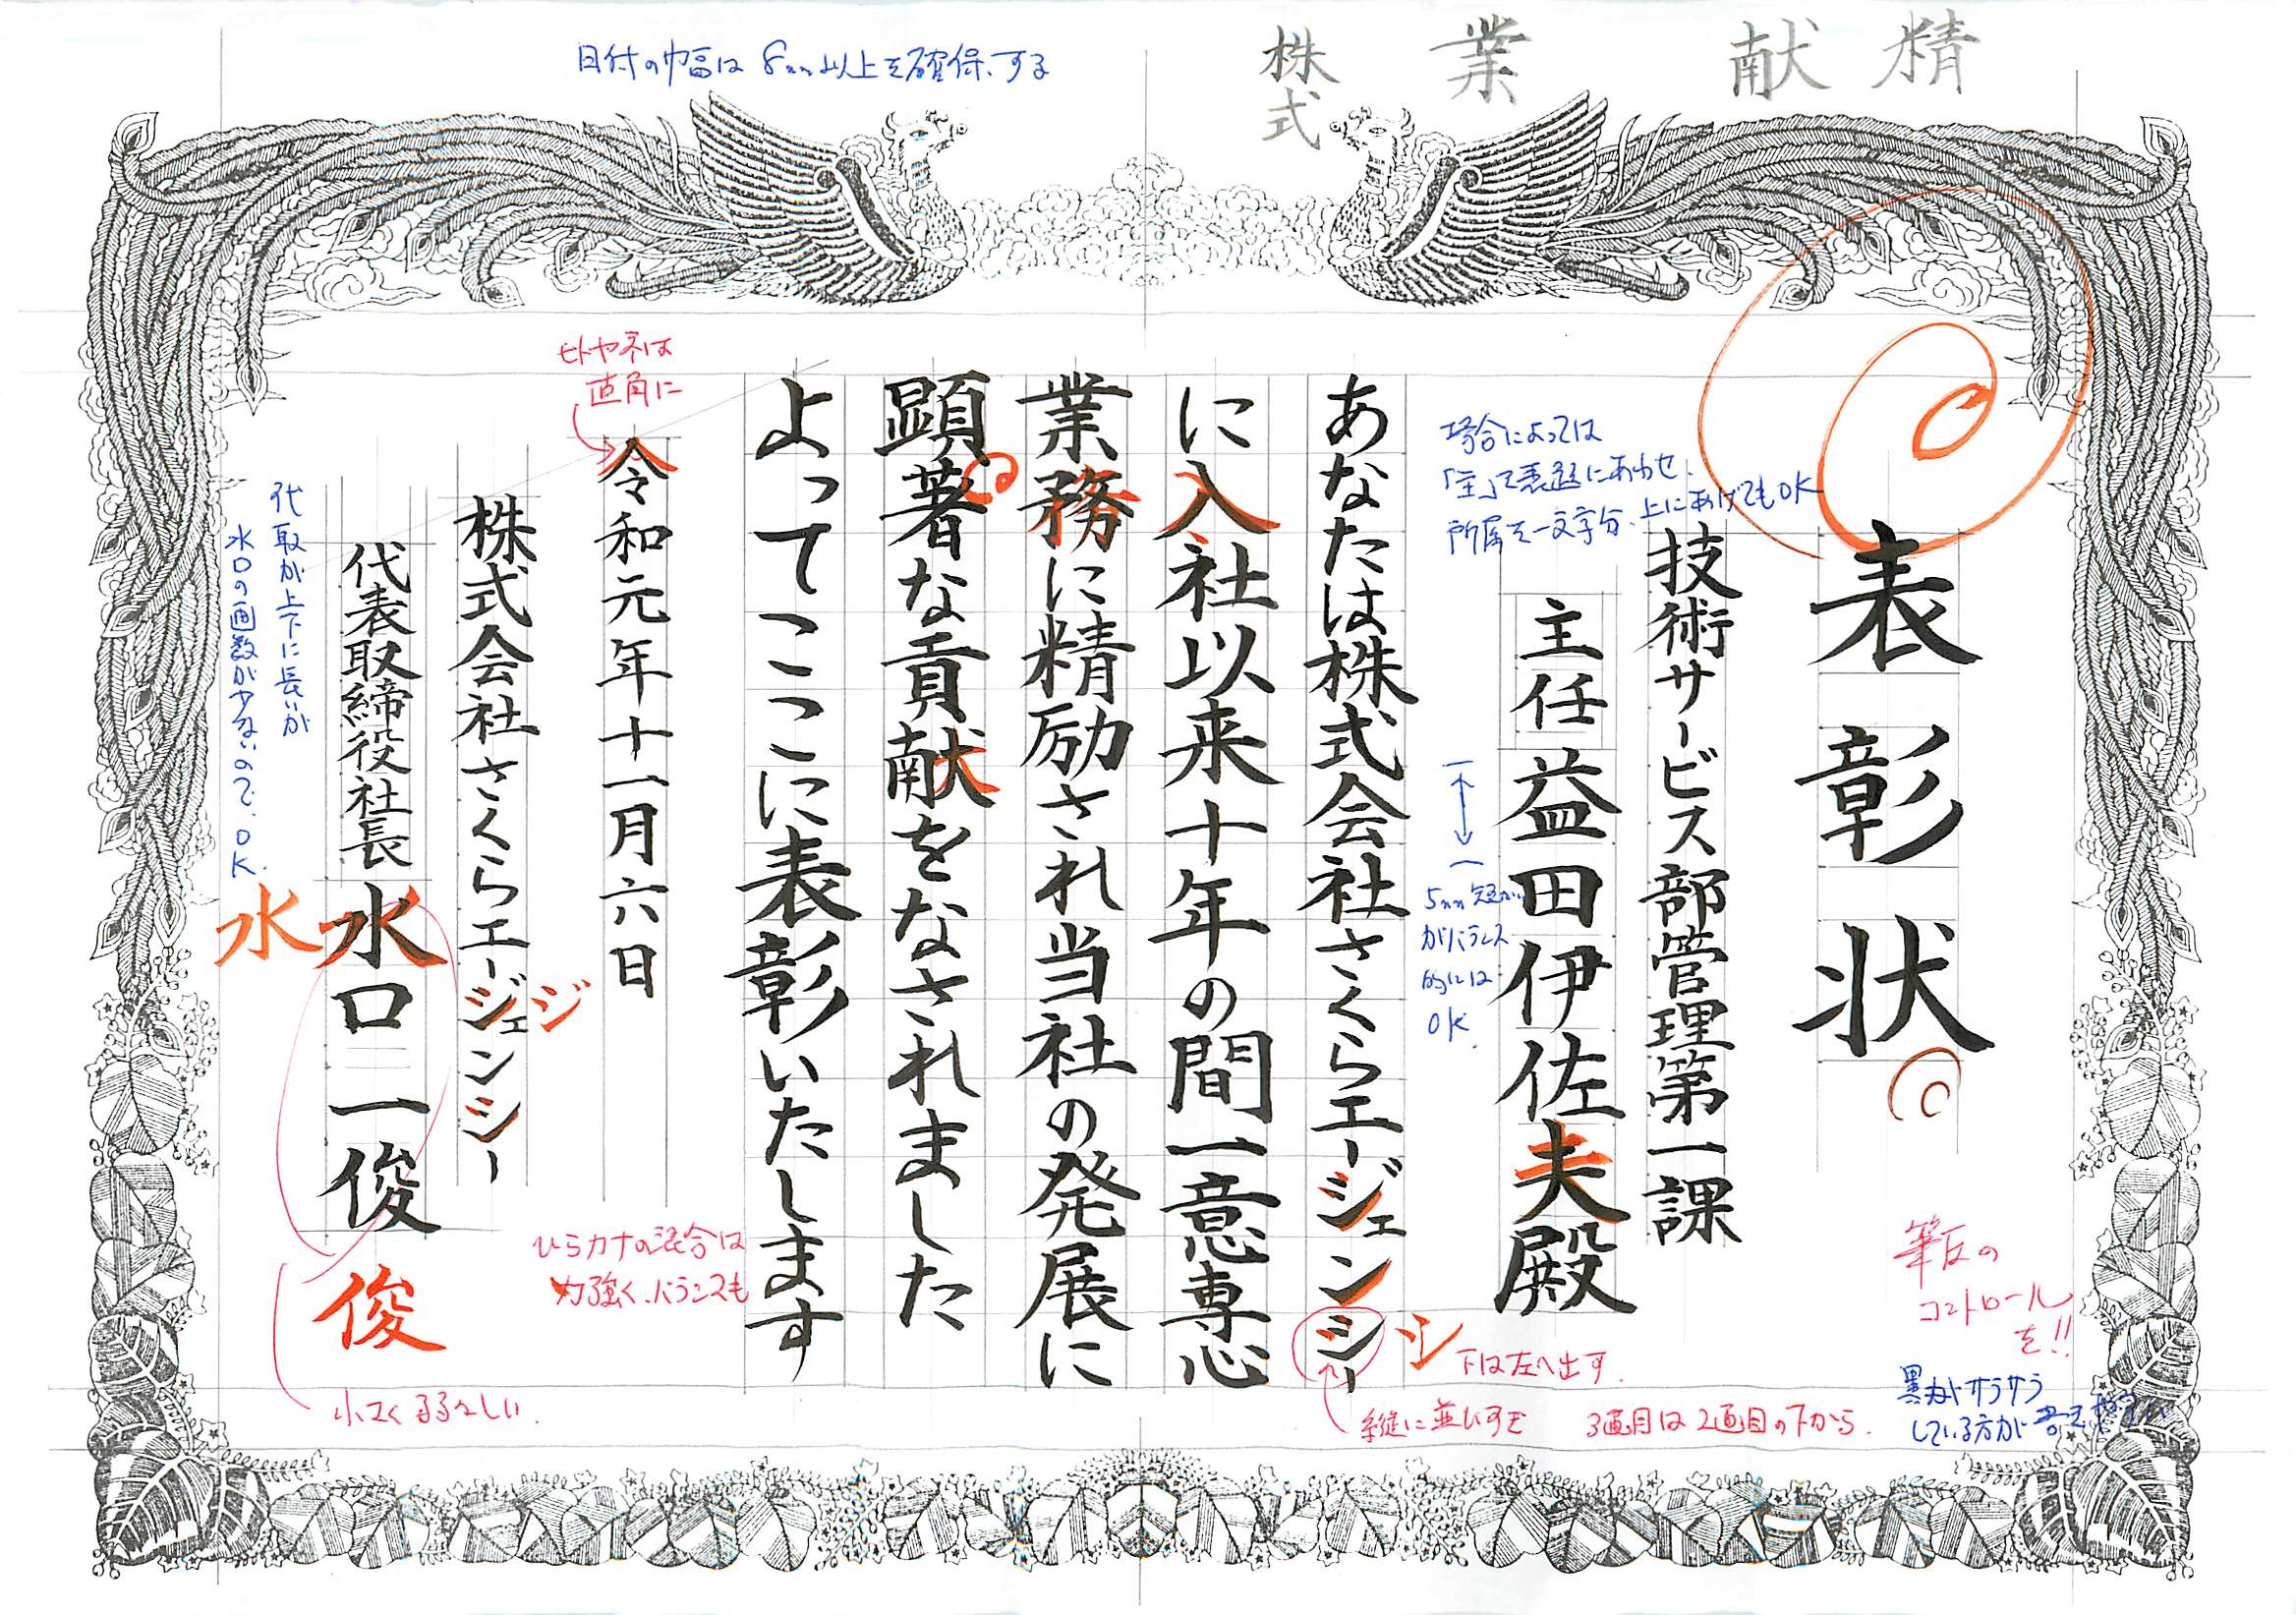 精
献
業
株式
日付の幅は8mm以上を確保する
表彰状
技術サービス部管理第一課
主任益田伊佐夫殿
あなたは株式会社さくらエージェンシー
に入社以来十年の間一意専心
業務に精励され当社の発展に
顕著な貢献をなされました
よってここに表彰いたします
令和元年十一月六日
株式会社さくらエージェンシー
代表取締役社長水口一俊
場合によっては
「主」で表題にあわせ、
所属を一文字分、上にあげてもOK
5mm短かい
がバランス
的には
OK.
ヒトヤネは
直角に
代取が上下に長いが
水口の画数が少ないので、OK.
水
ジ
俊
シ
小さく弱々しい.
ひらカナの混合は
力強く、バランスも
下は左へ出す.
縦に並びすぎ
3画目は2画目の下から.
筆圧の
コントロール
を!!
サラサラ
している方が